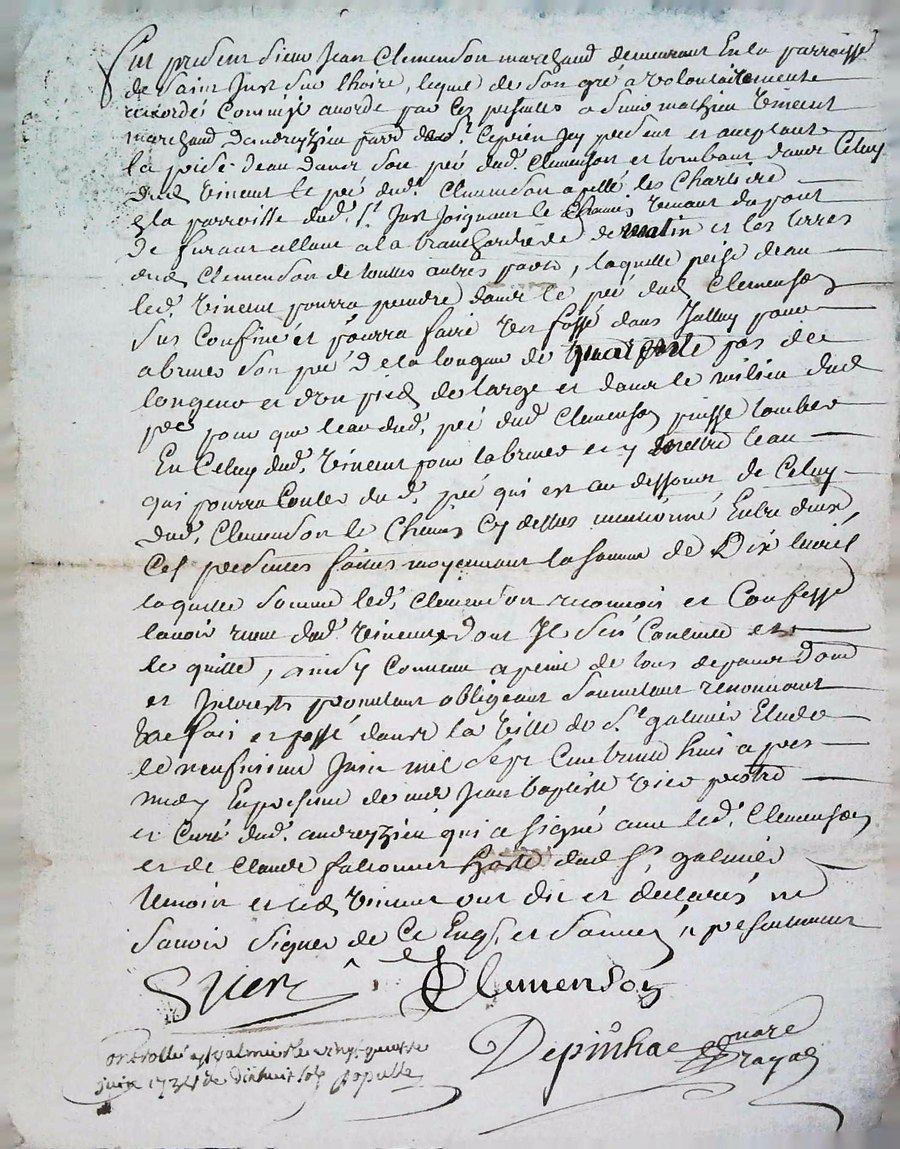 Fut present sieur Jean Clemenson marchand demeurant En la parroisse
de saint Just sur Lhoire, lequel de son gre a volontairement
accordé Comme il acorde par ces presentes a sieur mathieu Vincent
marchand dandrezieu parr. de St. Ciprien Icy present et aceptant
la prise deau dans son pré dud. Clemenson et tombant dans Celuy
dud Vincent le pré dud. Clemenson apellé les
En la parroisse dud. St. Just Joignant le Chemin Venant du pont
de furant allant a la de matin et les terres
dud Clemenson de touttes autres parts, laquelle prise deau
led. Vincent pourra prendre dans le pré dud Clemenson
sus Confiné et pourra faire un fossé dans Icelluy pour
abreuver son pré de la longeur de pas de
longeur et d'un pied de large et dans le milieu dud
pré pour que leau dud. pré dud Clemenson puisse tomber
En Celuy dud. Vincent pour labreuver et y mettre leau
qui pourra Couler du d. pré qui est au dessous de Celuy
dud. Clemenson le Chemin Cy dessus mentionné Entre deux,
Ces presentes faites moyennant la somme de Dix livres
laquelle somme led. Clemenson reconnoit et Confesse
lavoir receue dud. Vincent dont Il sen Contente et
le quitte, ainsy Convenu a peine de tous depans dom
et Interests promettant obligeant soumettant renonçant
fait et passé dans la Ville de St galmier Etude
le neufvieme Juin mil sept Cent trente huit apres
midy En presence de mre Jean baptiste Vier prestre
et Curé dud. andrezieu qui a signé avec led. Clemenson
et de Claude falconnet hoste dud St galmier
temoin et led Vincent ont dit et declarés ne
savoir signer de Ce Enqs. et sommés
Vier Clemenson
Controllé a St Galmier le vingt quatre
juin 1738 Re dix huit sols
Depinhac nore Royal